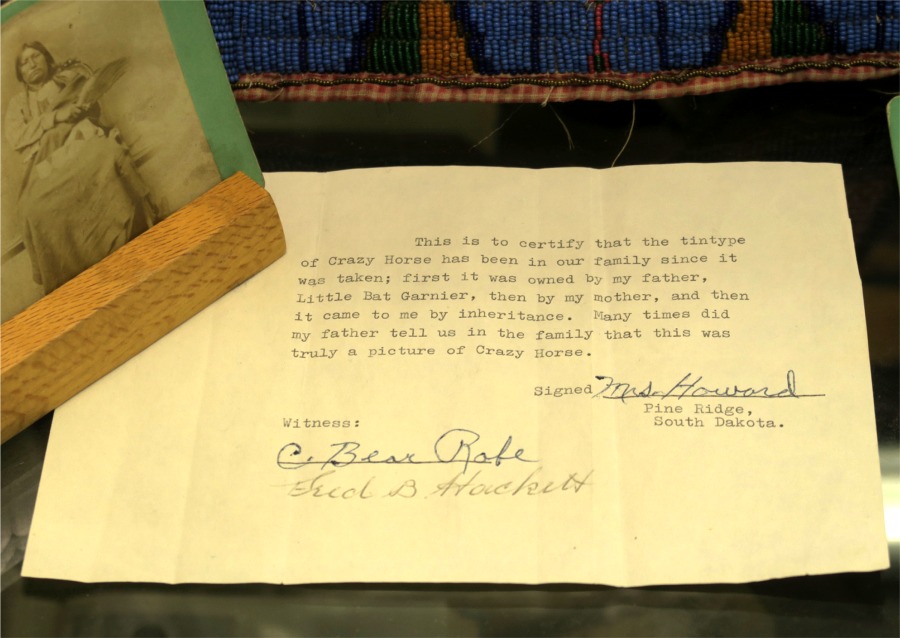 This is to certify that the tintype
of Crazy Horse has been in our family since it
was taken; first it was owned by my father,
Little Bat Garnier, then by my mother, and then
it came to me by inheritance. Many times did
my father tell us in the family that this was
truly a picture of Crazy Horse.
Signed Mrs. Howard
Pine Ridge,
South Dakota.
Witness:
C. Bear Robe
Fred B. Hackett